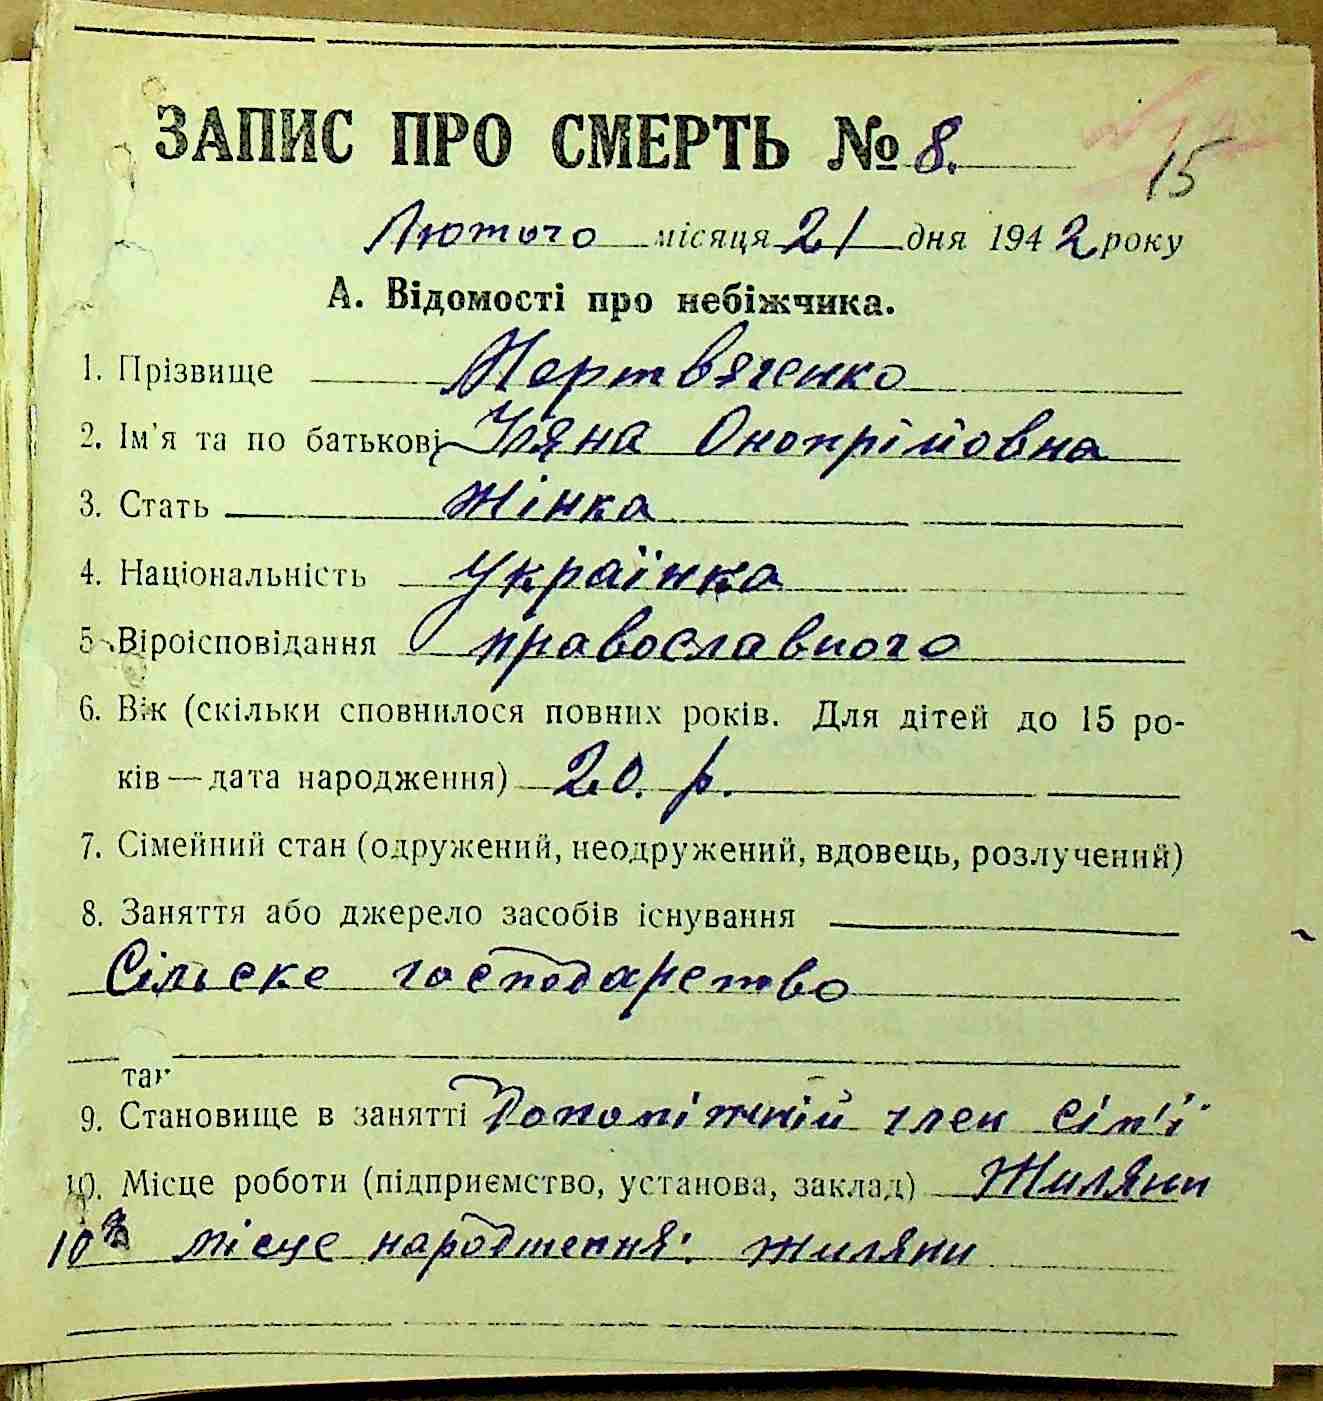 ЗАПИС ПРО СМЕРТЬ № 8.
15
Лютого місяця 21 дня 1942 року
А. Відомості про небіжчика.
1. Прізвище Мертвяченко
2. Ім'я та по батькові Уляна Онопрійовна
3. Стать жінка
4. Національність українка
5 Віроісповідання православного
6. Вік (скільки сповнилося повних років. Для дітей до 15 ро-
ків — дата народження) 20. р.
7. Сімейний стан (одружений, неодружений, вдовець, розлучений)
8. Заняття або джерело засобів існування
Сільске господарство
9. Становище в занятті Допоміжній член сім'ї
10. Місце роботи (підприємство, установа, заклад) Жиляни
10а місце народження: жиляни